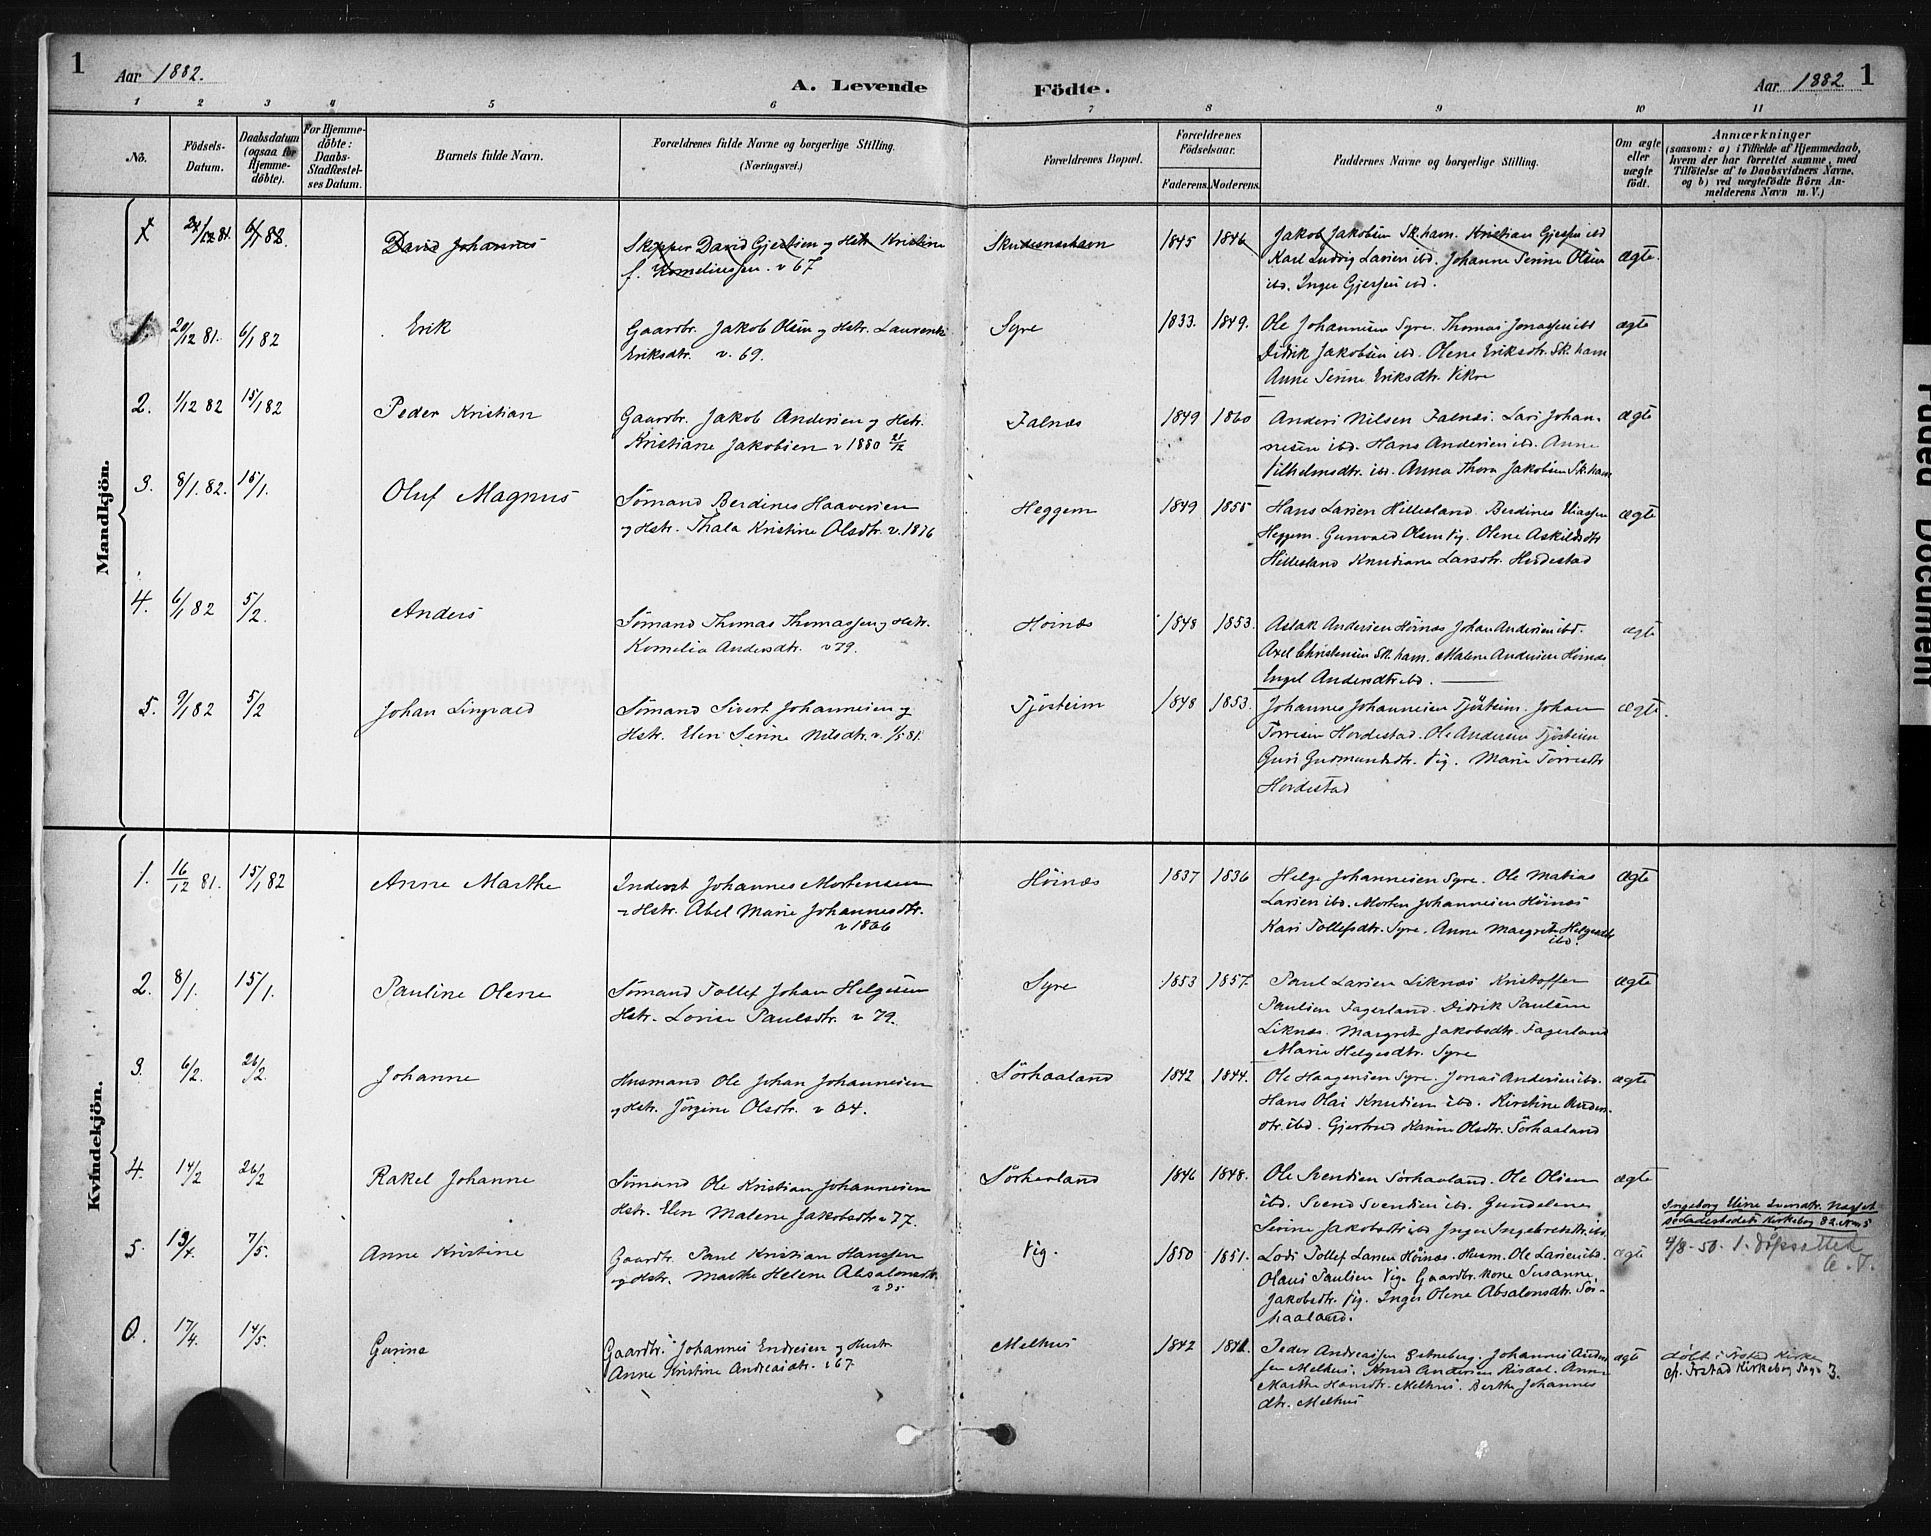 1
Aar 1882.
A. Levende
Födte.
Aar 1882.
1
1 2 3 4 5 6 7 8 9 10 11
No.
Födsels-Datum.
Daabsdatum (ogsaa for Hjemme-döbte).
For Hjemme-döbte: Daabs-Stadfæstel-ses Datum.
Barnets fulde Navn.
Forældrenes fulde Navne og borgerlige Stilling.
(Næringsvei.)
Forældrenes Bopæl.
Forældrenes Födselsaar.
Faderens. Moderens.
Faddernes Navne og borgerlige Stilling.
Om ægte eller uægte födt.
Anmærkninger
(saasom: a) i Tilfælde af Hjemmedaab, hvem der har forrettet samme, med Tilföielse af to Daabsvidners Navne, og b) ved uægtefödte Börn Anmelderens Navn m. V.)
Mandkjön.
David Johannes
Skipper David Gjertsen og Hstr. Kristine
f. Korneliussen. v 67
Skudesneshavn
1845 1846
Jakob Jakobsen Sk.havn. Kristian Gjersen ibd
Karl Ludvig Larsen ibd. Johanne Serine Olsen
ibd. Inger Gjersen ibd.
ægte.
1. 20/12 81. 6/1 82
Erik
Gaardbr. Jakob Olsen og Hstr. Laurentse
Eriksdtr. v. 69.
Syre
1833. 1849.
Ole Johannesen Syre. Thomas Jonassen ibd
Didrik Jakobsen ibd. Olene Eriksdtr. Sk.havn
Anne Serine Eriksdtr. Vikre
ægte
2. 1/12 82 15/1 82
Peder Kristian
Gaardbr. Jakob Andersen og Hstr.
Kristiane Jakobsen v 1880 21/12
Falnæs
1849 1860
Anders Nilsen Falnæs. Lars Johan-
nesen ibd. Hans Andersen ibd. Anne
Vilhelmsdtr. ibd. Anna Thora Jakobsen Sk.havn
ægte
3. 8/1. 82. 15/1.
Oluf Magnus
Sömand Berdines Haaversen
og Hstr. Thala Kristine Olsdtr. v. 1876
Heggem
1849 1855
Hans Larsen Hillesland. Berdines
Heggem. Gunvald Olsen Vig. Olene Askildsdtr
Hillesland Knudiane Larsdtr. Hordestad
ægte
4. 6/1 82 5/2.
Anders
Sömand Thomas Thomassen og Hstr.
Kornelia Andersdtr. v 79.
Höinæs
1848 1853.
Aslak Andersen Höinæs Johan Andersen ibd.
Axel Christensen Sk.havn. Malene Andersen Höinæs
Engel Andersdtr ibd.
ægte
5. 9/1 82 5/2
Johan Singvald
Sömand Sivert Johannesen og
Hstr. Elen Serine Nilsdtr. v. 1/5 81.
Tjösteim
1848 1853.
Johannes Johannesen Tjösteim. Johan
Torresen Hordestad. Ole Andersen Tjösteim
Guri Gudmundsdtr. Vig. Marie Torresdtr
Hordestad
ægte.
Kvindekjön.
1. 16/12 81. 15/1 82
Anne Marthe
Inderst Johannes Mortensen
Hstr. Abel Marie Johannesdtr.
v 1866
Höinæs
1837 1836
Helge Johannesen Syre. Ole Matias
Larsen ibd. Morten Johannesen Höinæs
Kari Tollefsdtr. Syre. Anne Margrete Helgesdtr
ibd.
ægte
2. 8/1. 15/1.
Pauline Olene
Sömand Tollef Johan Helgesen
Hstr. Lovise Paulsdtr. v 79.
Syre
1853 1857.
Paul Larsen Liknæs Kristoffer
Paulsen Fagerland. Didrik Paulsen
Liknæs. Margrete Jakobsdtr. Fagerland
Marie Helgesdtr. Syre
ægte
3. 6/2. 26/2.
Johanne
Husmand Ole Johan Johannesen
og Hstr. Jörgine Olsdtr. v 64.
Sörhaaland
1842 1844.
Ole Haagensen Syre. Jonas Andersen ibd.
Hans Olai Knudsen ibd. Kirstine Anders-
dtr. ibd. Gjertrud Karine Olsdtr. Sörhaaland
ægte
4. 14/2 26/2
Rakel Johanne
Sömand Ole Kristian Johannesen
Hstr. Elen Malene Jakobsdtr v 77.
Sörhaaland
1846 1848.
Ole Svendsen Sörhaaland. Ole Olsen
ibd. Svend Svendsen ibd. Gundelene
Serine Jakobsdtr ibd Inger Ingebretsdtr. ibd.
ægte
Kirkebog 82 No 5
5. 13/4. 7/5.
Anne Kristine
Gaardbr. Paul Kristian Hansen
og Hstr. Marthe Helene Absalonsdtr.
v 75
Vig.
1850 1851.
Lods Tollef Larsen Höinæs. Husm. Ole Larsen ibd.
Olaus Paulsen Vig. Gaardbr. kone Susanne
Jakobsdtr. Vig. Inger Olene Absalonsdtr. Sör-
haaland.
ægte
4/8-50. 1. döpsattest
17/4. 14/5.
Gurine
Gaardbr. Johannes Endresen og Hustr
Anne Kristine Andreasdtr. v 67
Melhus
1842
Peder Andreassen Johannes Ander-
sen Melhus. Knud Andersen Risdal. Anne
Marthe Hansdtr. Melhus. Berthe Johannes
dtr. Melhus
ægte
döbt i Kirke
Kirkebog Pag. 3.
Tilded Document